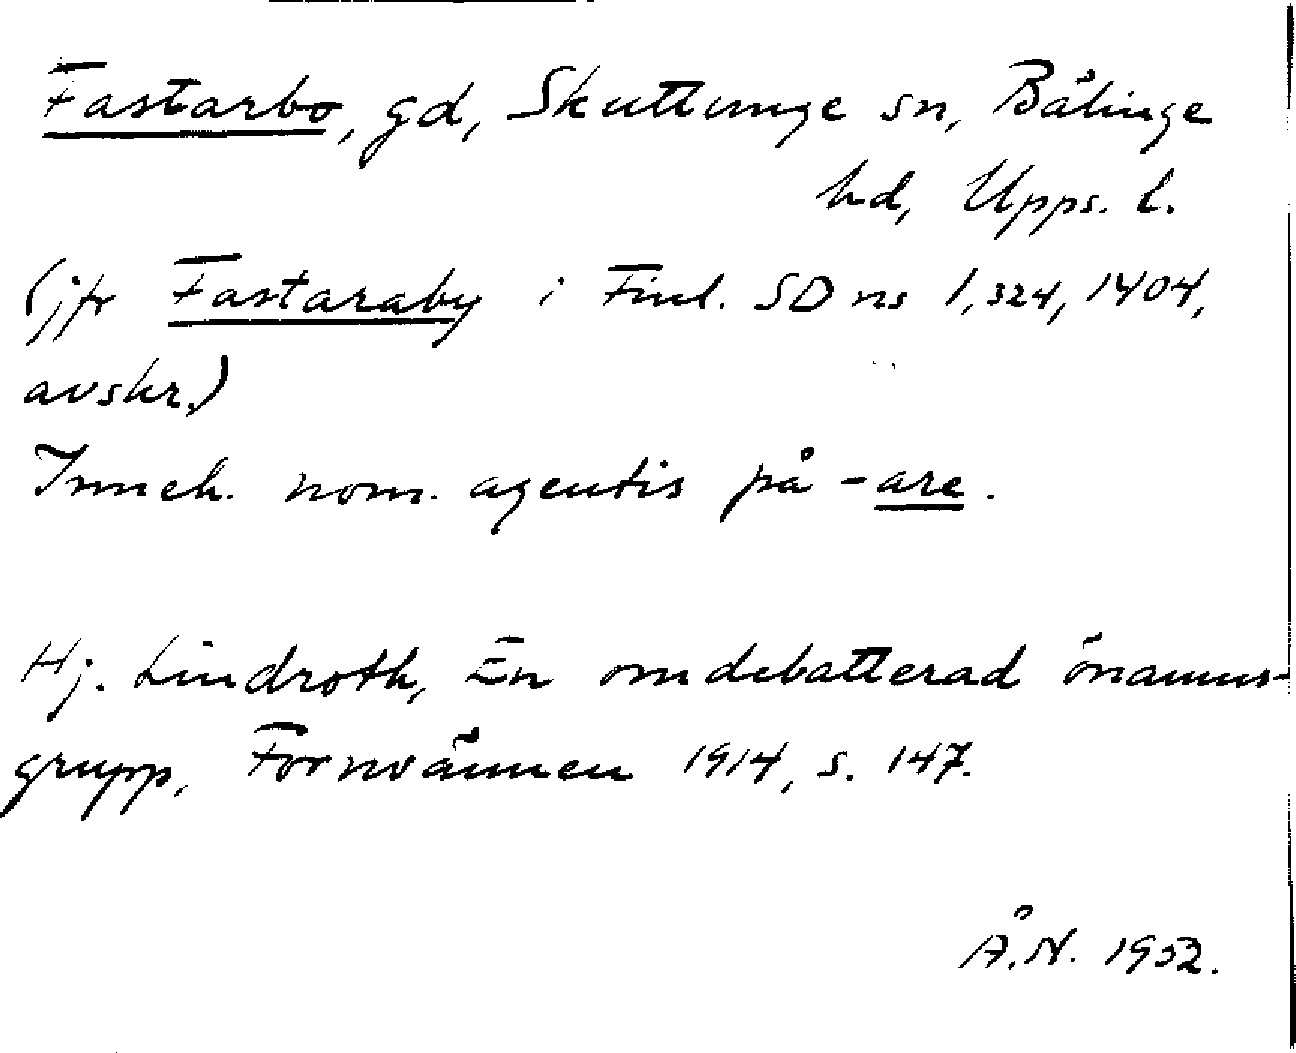 Fastarbo, gd, Skuttunge sn, Bälinge
hd, Upps. l.
(jfr Fastaraby i Finl. SD ns 1,324, 1404,
avskr.)
Inneh. nom. agentis på -are.
Hj. Lindroth, En omdebatterad önamns-
grupp, Fornvännen 1914, s. 147.
Å.N. 1952.